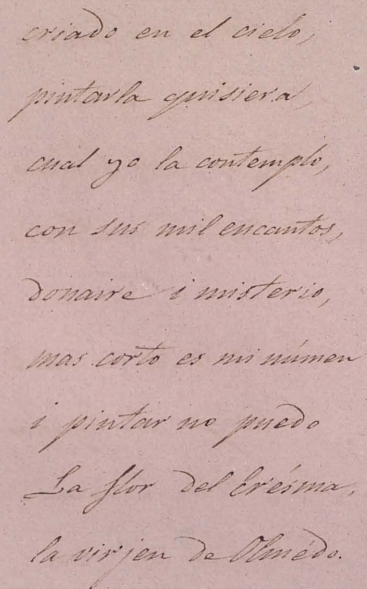 criado en el cielo,
pintarla quisiera,
cual yo la contemplo,
con sus mil encantos,
donaire i misterio,
mas corto es mi númen
i pintar no puedo
La flor del Erésma,
la virjen de Olmédo.